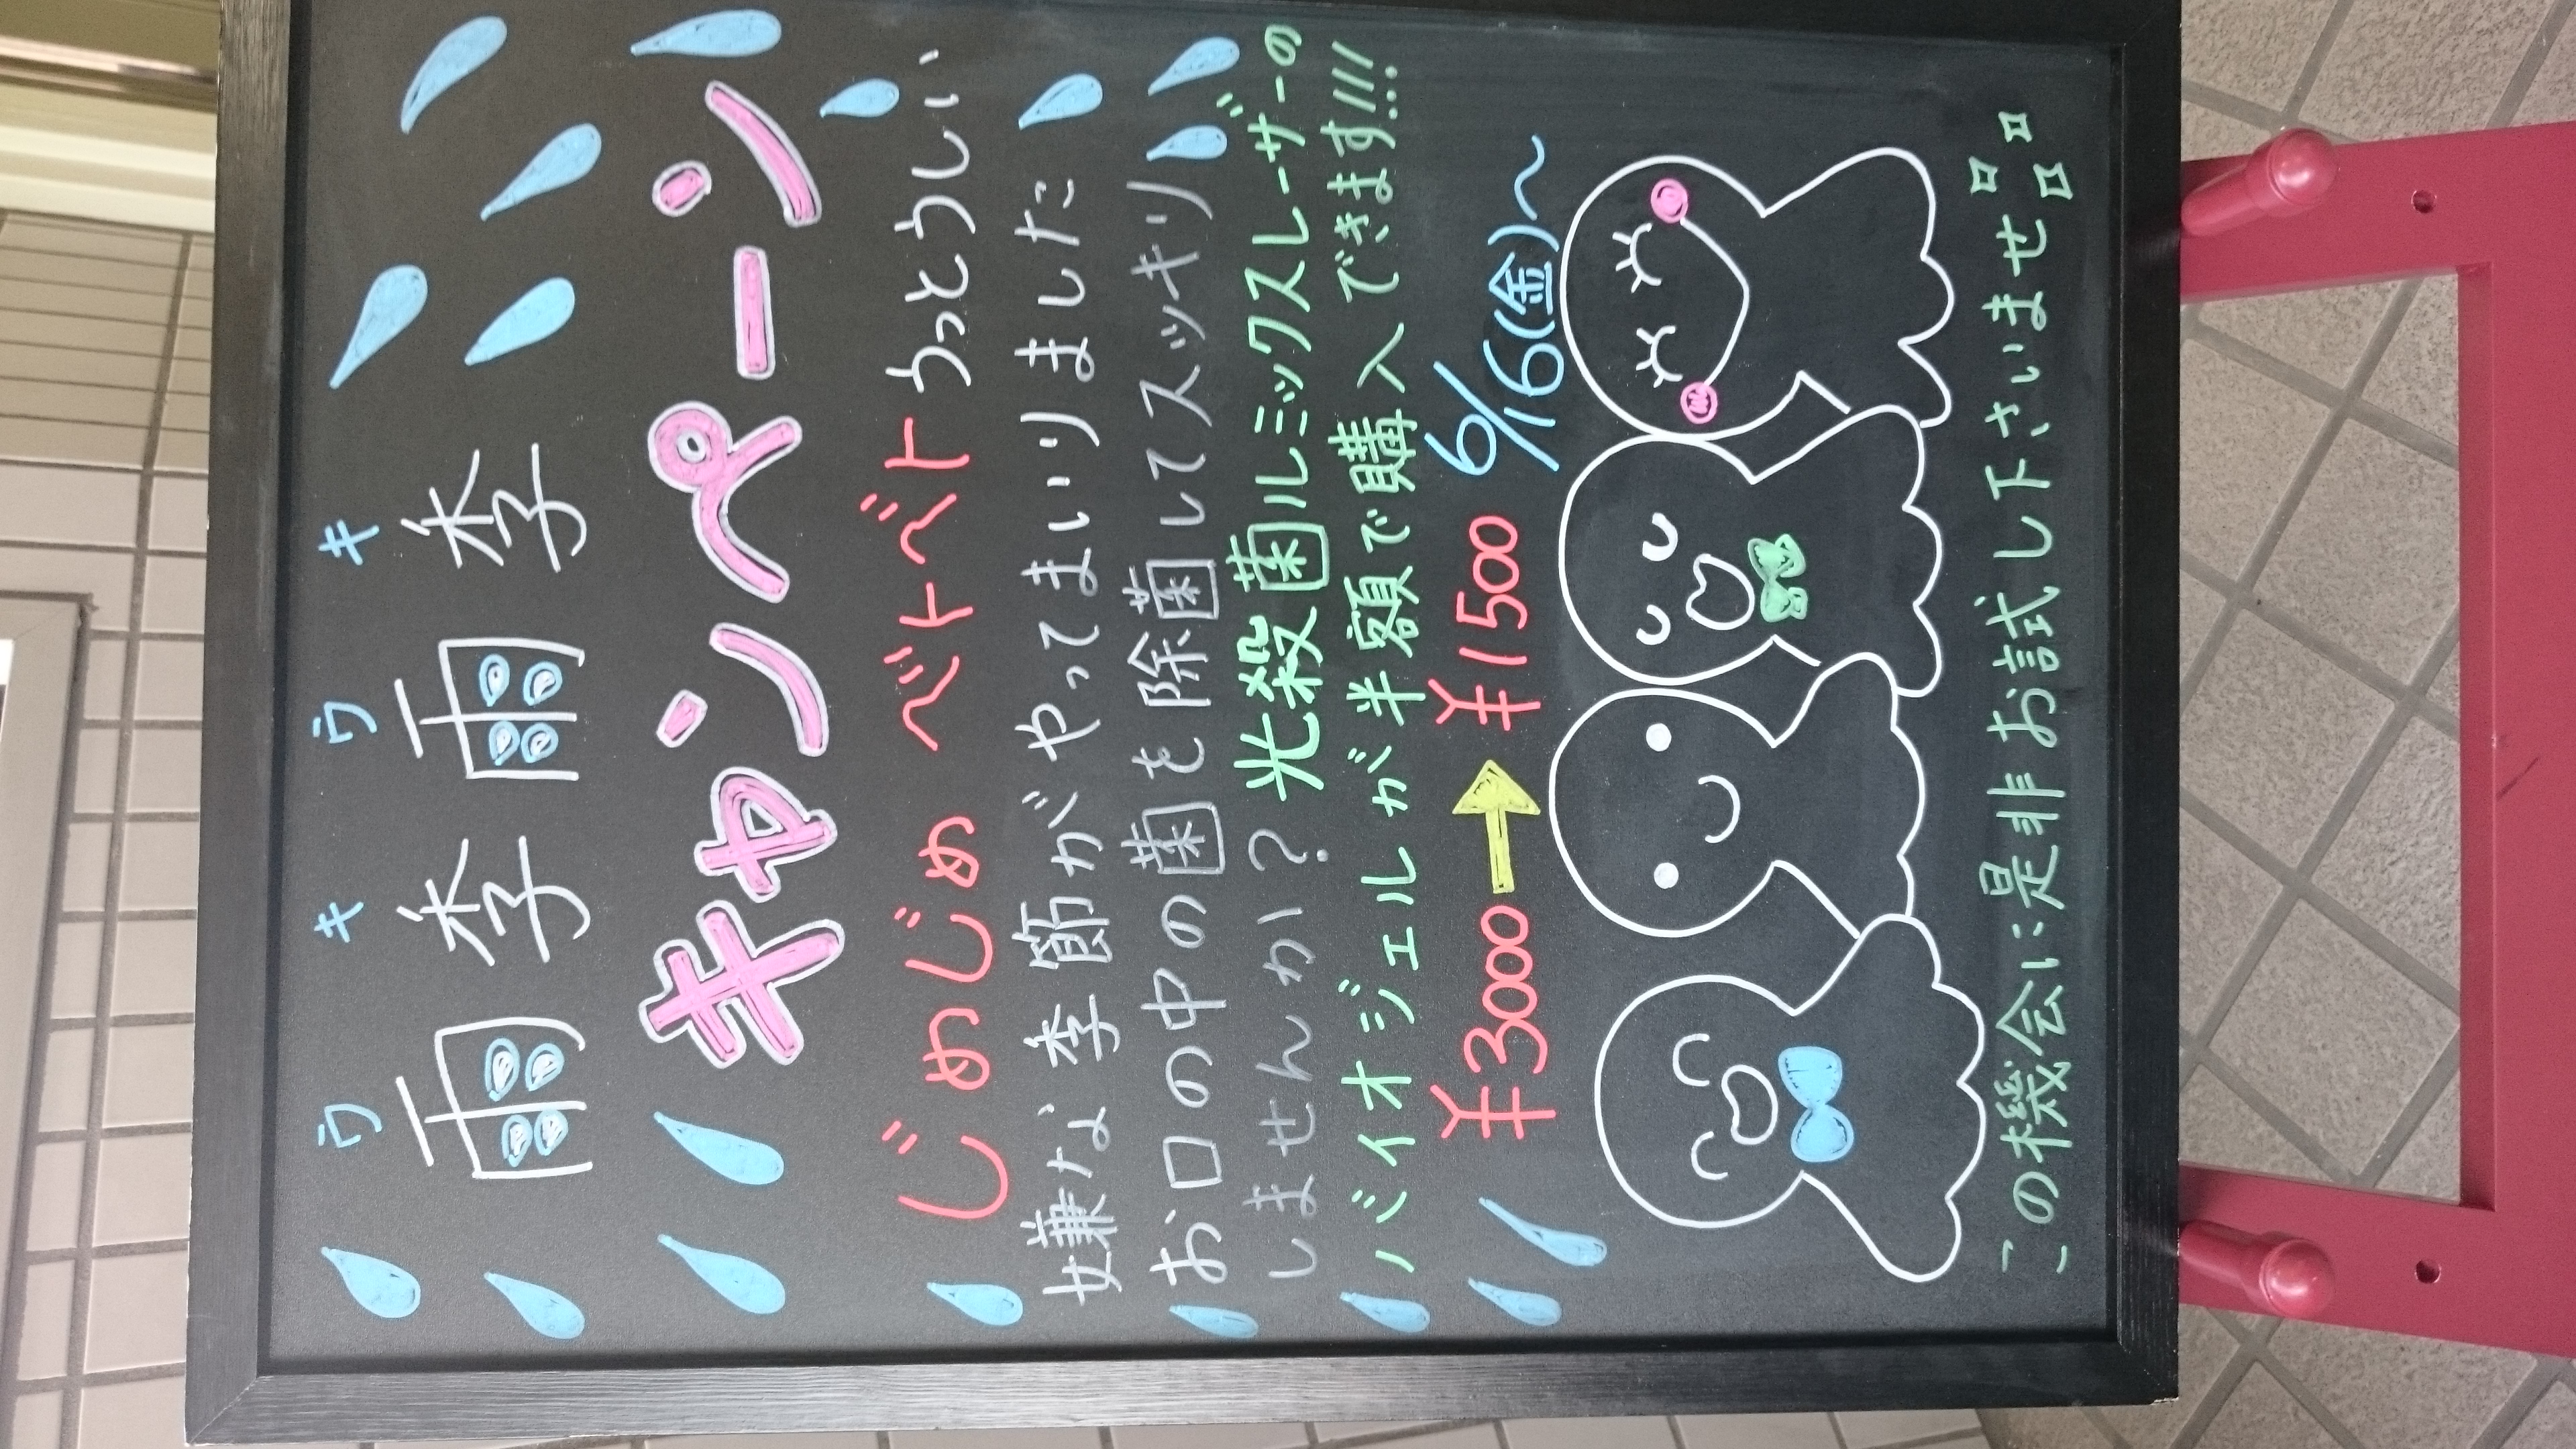 ウキ ウキ
雨季 雨季
キャンペーン
じめじめ ベトベト うっとうしい
嫌な季節がやってまいりました
お口の中の菌を除菌してスッキリ
しませんか? 光殺菌ルミックスレーザーの
バイオジェルが半額で購入できます!!!
¥3000→¥1500 6/16(金)~
この機会に是非お試し下さいませ